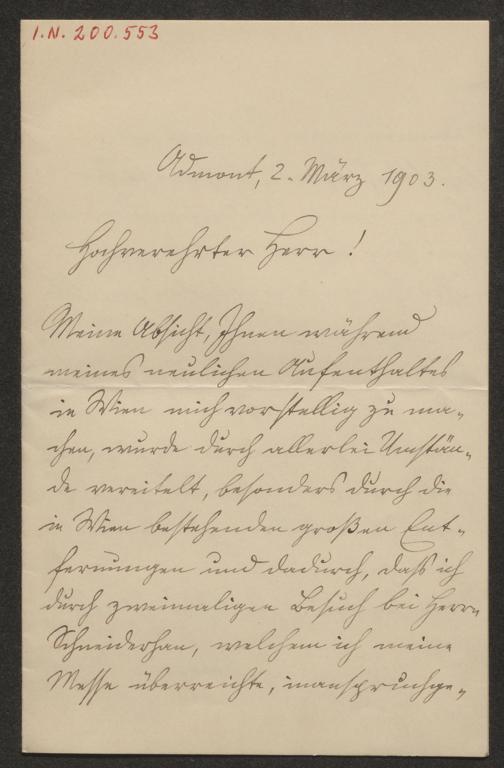 I.N. 200.553
Admont, 2. März 1903.
Hochverehrter Herr!
Meine Absicht, Ihnen während
meines neulichen Aufenthaltes
in Wien mich vorstellig zu ma-
chen, wurde durch allerlei Umstän-
de vereitelt, besonders durch die
in Wien bestehenden großen Ent-
fernungen und dadurch, daß ich
durch zweimaligen Besuch bei Herrn
Schneiderhan, welchem ich meine
Messe überreichte, inanspruchge-